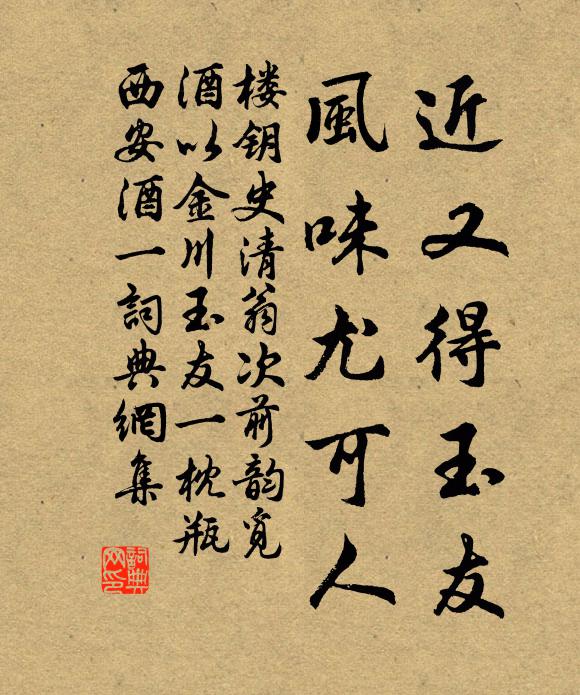 近又得玉友
風味尤可人
楼钥史清翁次前韵觅
酒以金川玉友一枕瓶
西安酒一詞典網集
詞典网印